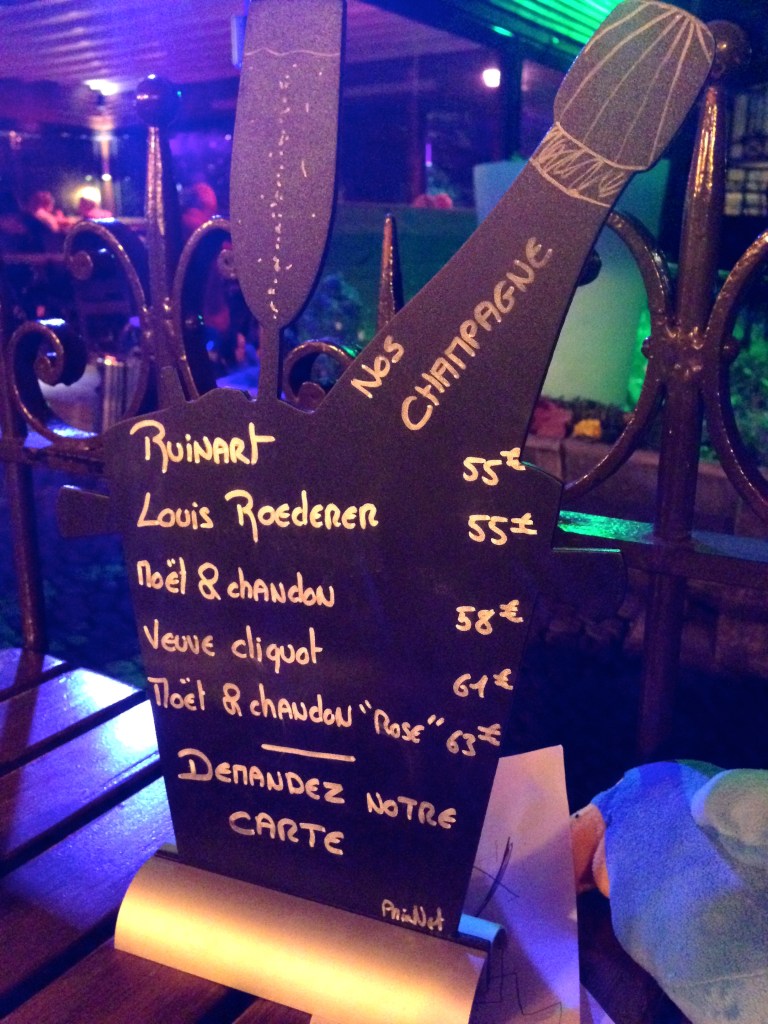 Nos
CHAMPAGNE
Ruinart 55€
Louis Roederer 55€
Moët & chandon 58€
Veuve cliquot 61€
Moët & chandon "Rosé" 63€
Demandez notre
carte
Prix Net